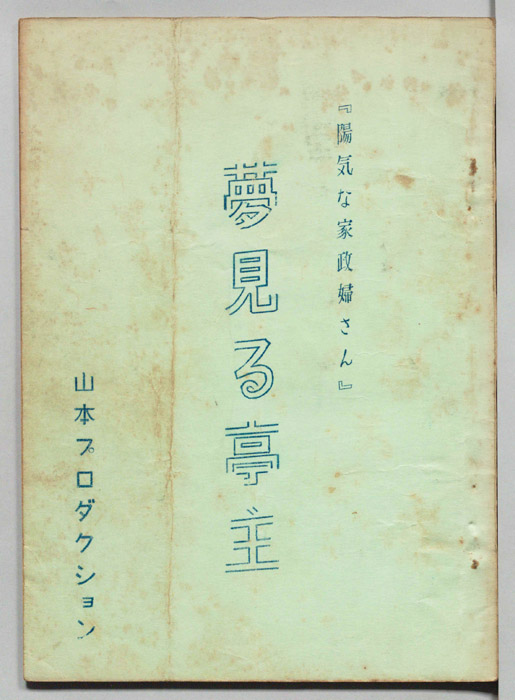 『陽気な家政婦さん』
夢見る亭主
山本プロダクション